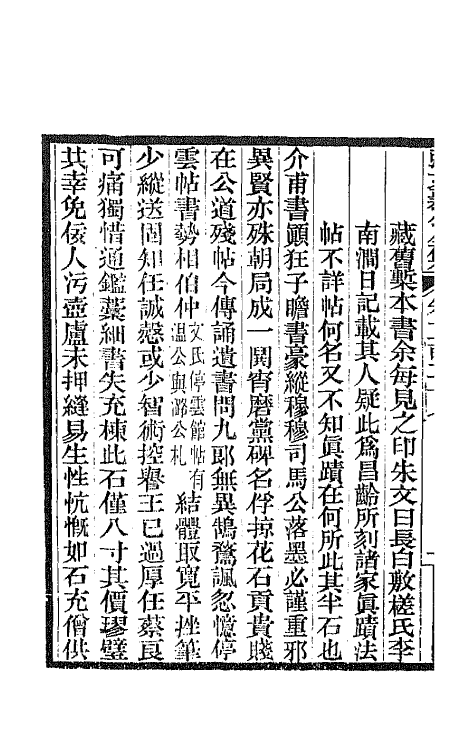 藏舊槧本書余每見之印朱文曰長白敷槎氏李
南澗日記載其人疑此爲昌齡所刻諸家眞蹟法
帖不詳帖何名又不知眞蹟在何所此其半石也
介甫書顚狂子瞻書豪縱穆穆司馬公落墨必謹重邪
異賢亦殊朝局成一鬨宵磨黨碑名俘掠花石貢貴賤
在公道殘帖今傳誦遺書問九郎無異鵠鶩諷忽憶停
雲帖書勢相伯仲文氏停雲館帖有溫公與潞公札結體取寬平挫筆
少縱送固知任誠慤或少智術控譽王已過厚任蔡良
可痛獨惜通鑑藁細書失充棟此石僅八寸其價璆璧
共幸免倭人污壺盧未押縫易生性忼慨如石充僧供